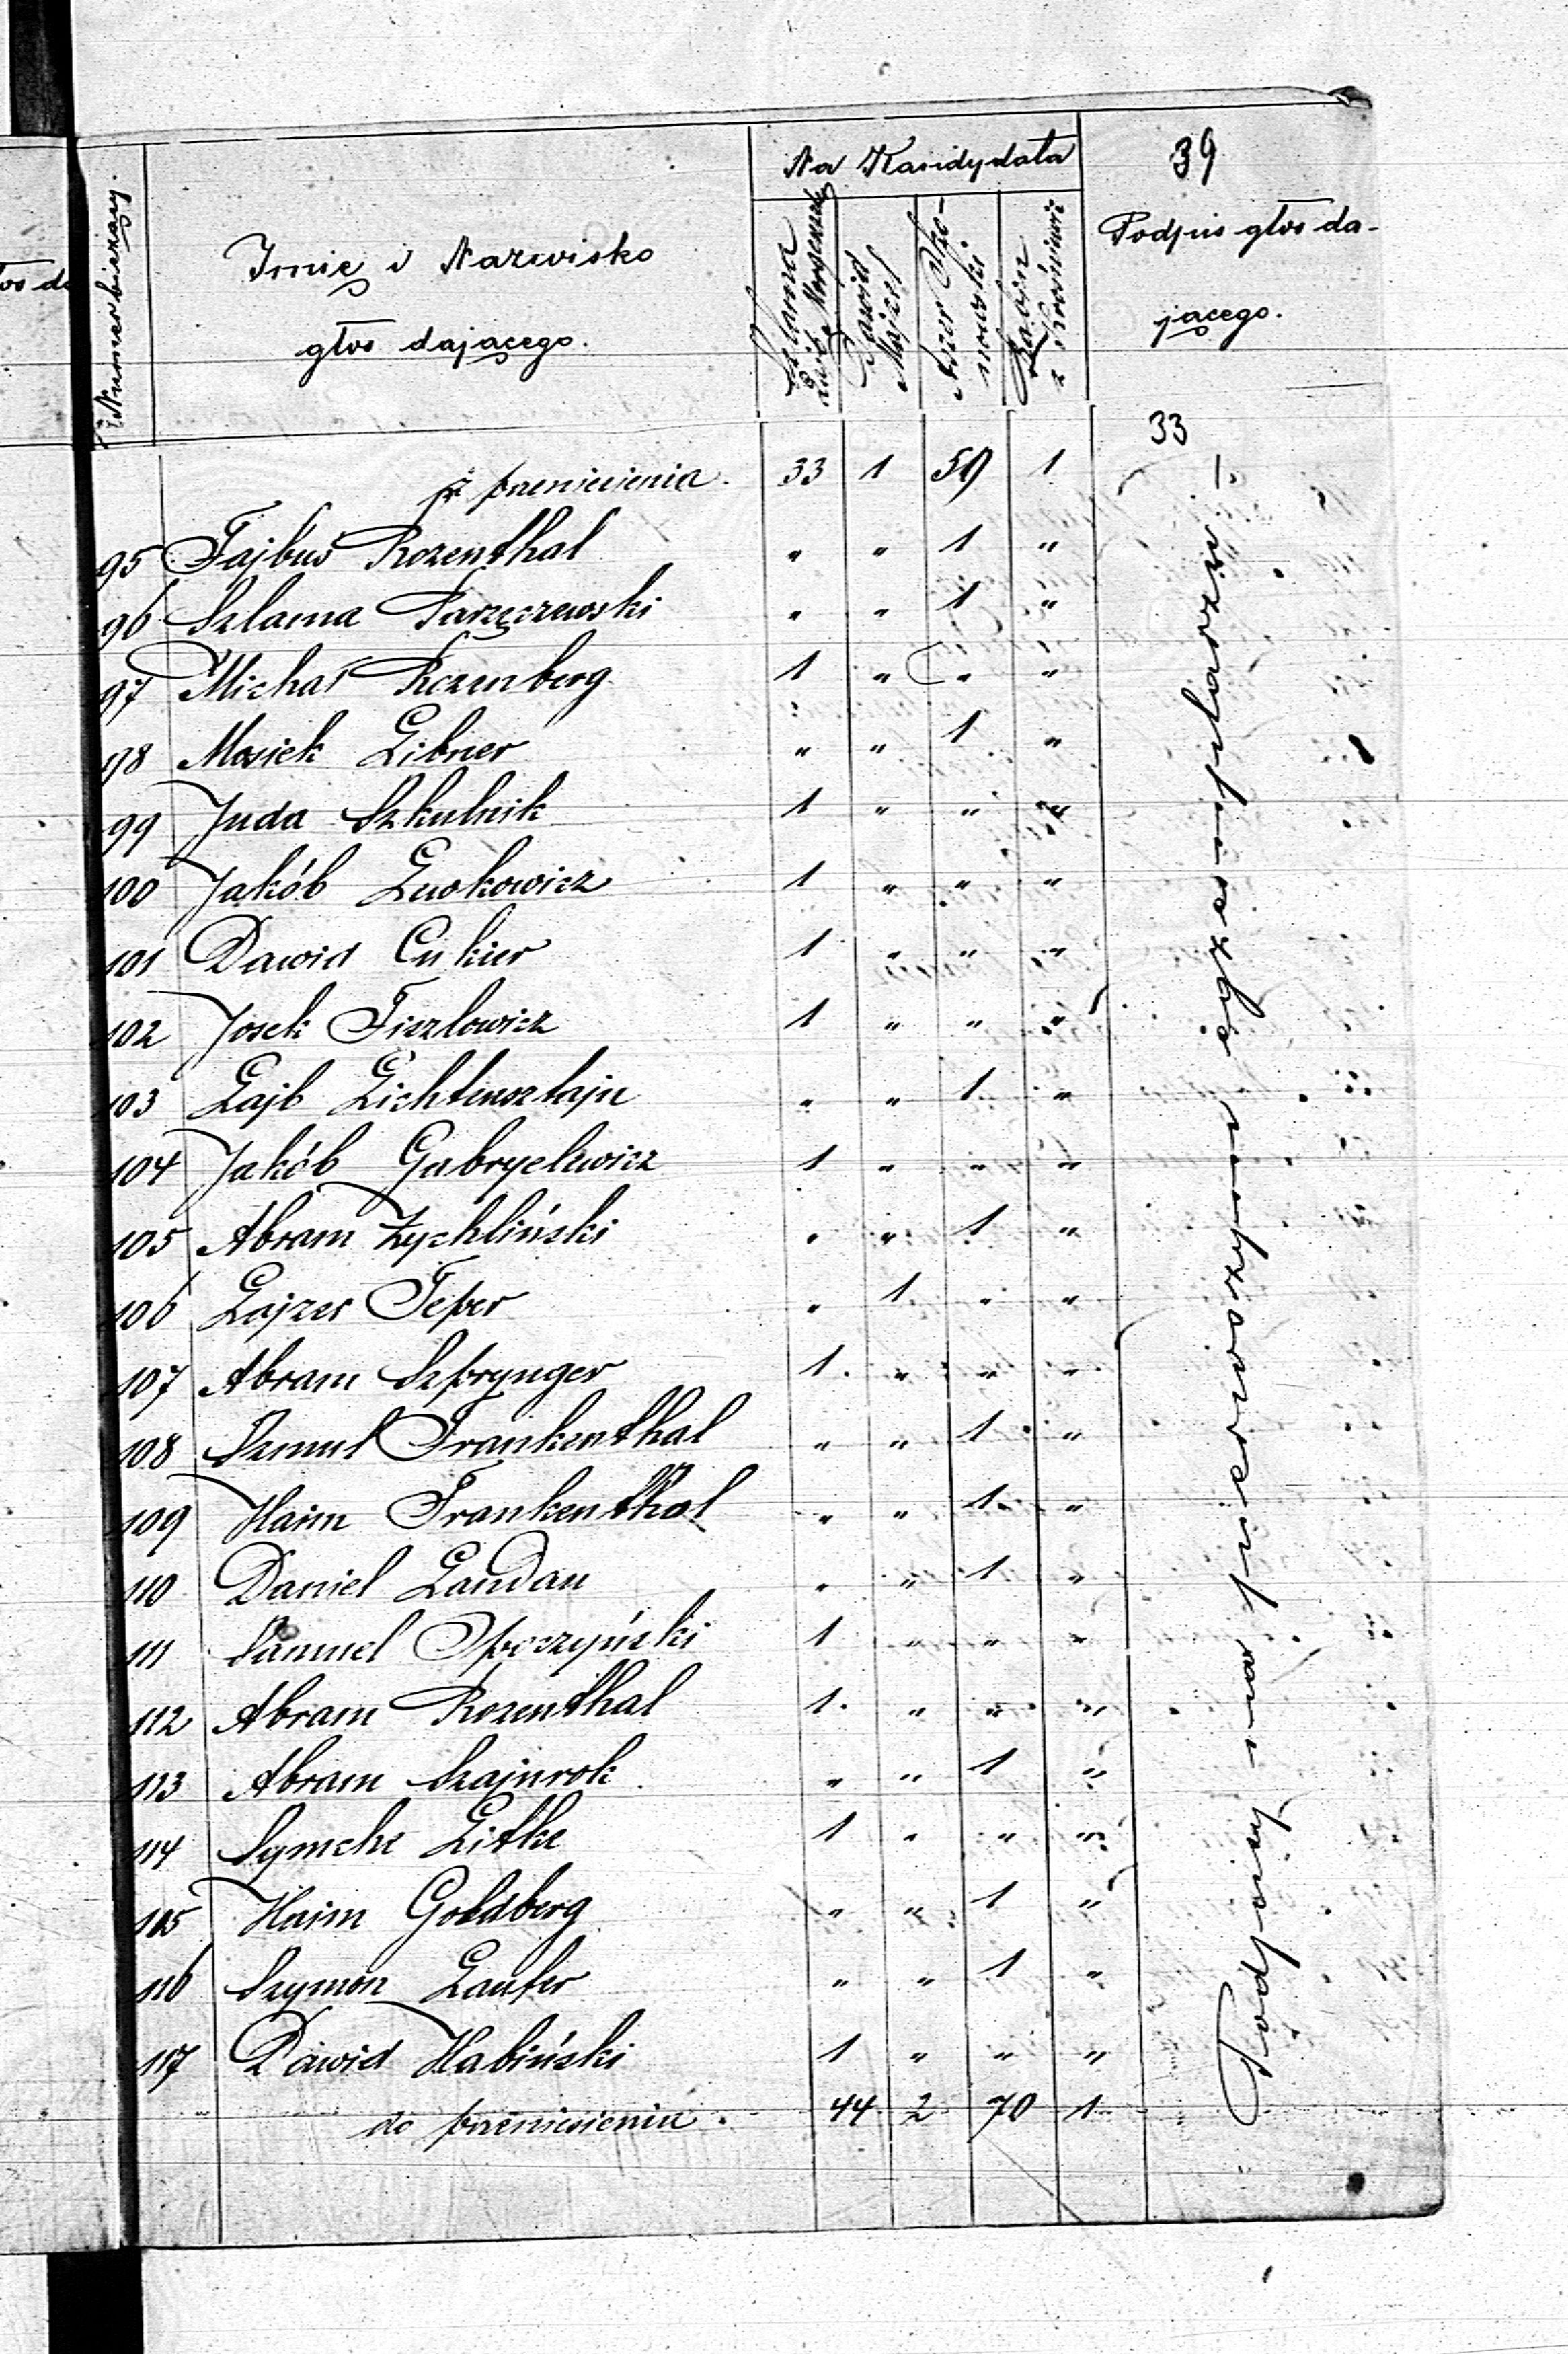 39
Numer bieżący.
Imię i Nazwisko
głos dającego.
Na Kandydata
Szlama
Dawid
Majzel
Rabin
Podpis głos da-
jącego.
33
z przeniesienia. 33 1 59 1
95 Fajbuś Rozenthal " " 1 "
96 Szlama Parzęczewski " " 1 "
97 Michał Rozenberg 1 " " "
98 Mosiek Libner " " 1 "
99 Juda Szkulnik 1 " " "
100 Jakób Luskowicz 1 " " "
101 Dawid Cukier 1 " " "
102 Josek Fiszlowicz 1 " " "
103 Lajb Lichtensztajn " " 1 "
104 Jakób Gabryelewicz 1 " " "
105 Abram Żychliński " " 1 "
106 Lajzer Teper " 1 " "
107 Abram Szprynger 1 " " "
108 Szmul Frankenthal " " 1 "
109 Haim Frankenthal " " 1 "
110 Daniel Landau " " 1 "
111 Samuel Opoczyński 1 " " "
112 Abram Rozenthal 1 " " "
113 Abram Szajnrok " " 1 "
114 Symche Litke 1 " " "
115 Haim Goldberg " " 1 "
116 Szymon Laufer " " 1 "
117 Dawid Habiński 1 " " "
do przeniesienia. 44 2 70 1
Podpisy na pierwszym egzemplarzu